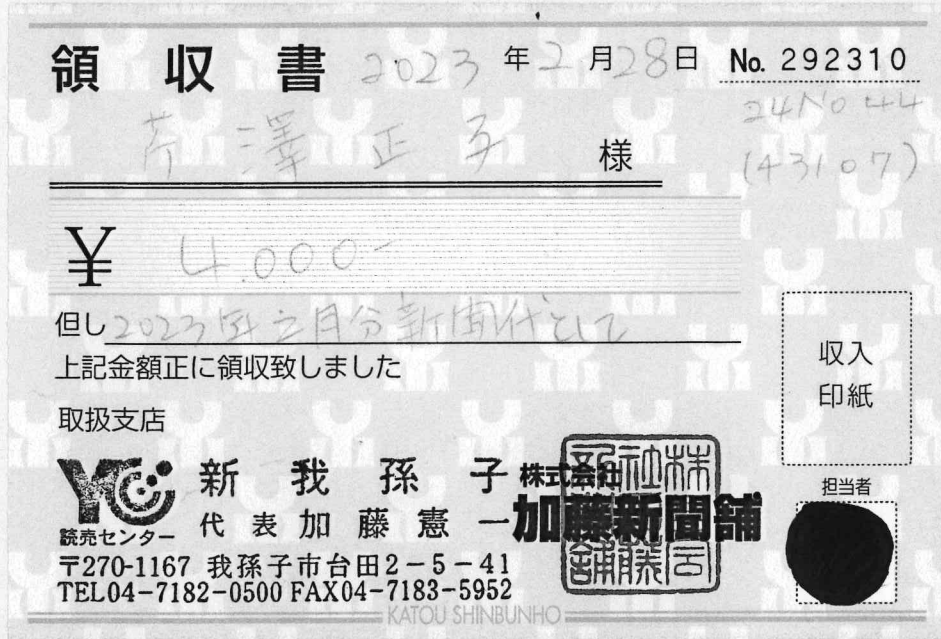 領収書 2023年2月28日 No. 292310
24No 44
芹澤正子 様
(43107)
¥ 4.000-
但し 2023年2月分新聞代として
上記金額正に領収致しました
収入
印紙
取扱支店
YC 新我孫子 株式会社
読売センター 代表 加藤憲一 加藤新聞舗
担当者
〒270-1167 我孫子市台田2-5-41
TEL04-7182-0500 FAX04-7183-5952
KATOU SHINBUNHO